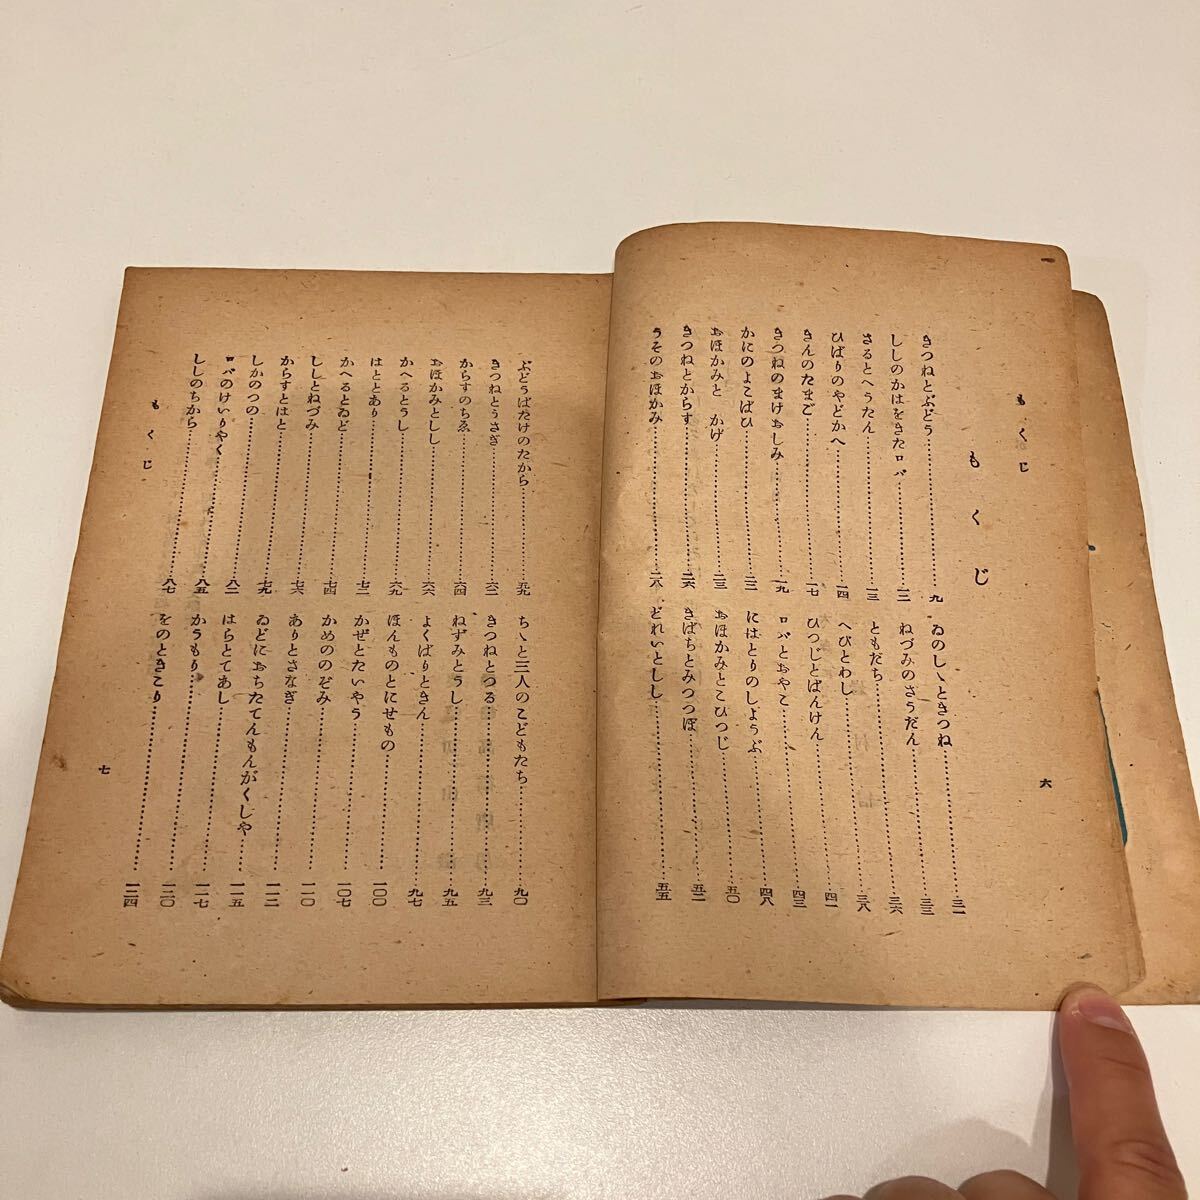 もくじ
もくじ
きつねとぶどう…………九
ししのかはをきたロバ…………一二
さるとへうたん…………一三
ひばりのやどかへ…………一四
きんのたまご…………一七
きつねのまけおしみ…………一九
かにのよこばひ…………二二
おほかみと かげ…………二三
きつねとからす…………二六
うそのおほかみ…………二八
ゐのしゝときつね…………三一
ねづみのさうだん…………三三
ともだち…………三六
へびとわし…………三八
ひつじとばんけん…………四一
ロバとおやこ…………四三
にはとりのしようぶ…………四八
おほかみとこひつじ…………五〇
きばちとみつつぼ…………五二
どれいとしし…………五五
六
ぶどうばたけのたから…………五九
きつねとうさぎ…………六二
からすのちゑ…………六四
おほかみとしし…………六六
かへるとうし…………六九
はととあり…………七二
かへるとゐど…………七四
ししとねづみ…………七六
からすとはと…………七九
しかのつの…………八二
ロバのけいりやく…………八五
ししのちから…………八七
ちゝと三人のこどもたち…………九〇
きつねとつる…………九三
ねずみとうし…………九五
よくばりときん…………九七
ほんものとにせもの…………一〇〇
かぜとたいやう…………一〇七
かめののぞみ…………一一〇
ありとさなぎ…………一一二
ゐどにおちたてんもんがくしや…………一一五
はらとてあし…………一一七
かうもり…………一二〇
をのときこり…………一二四
もくじ
七